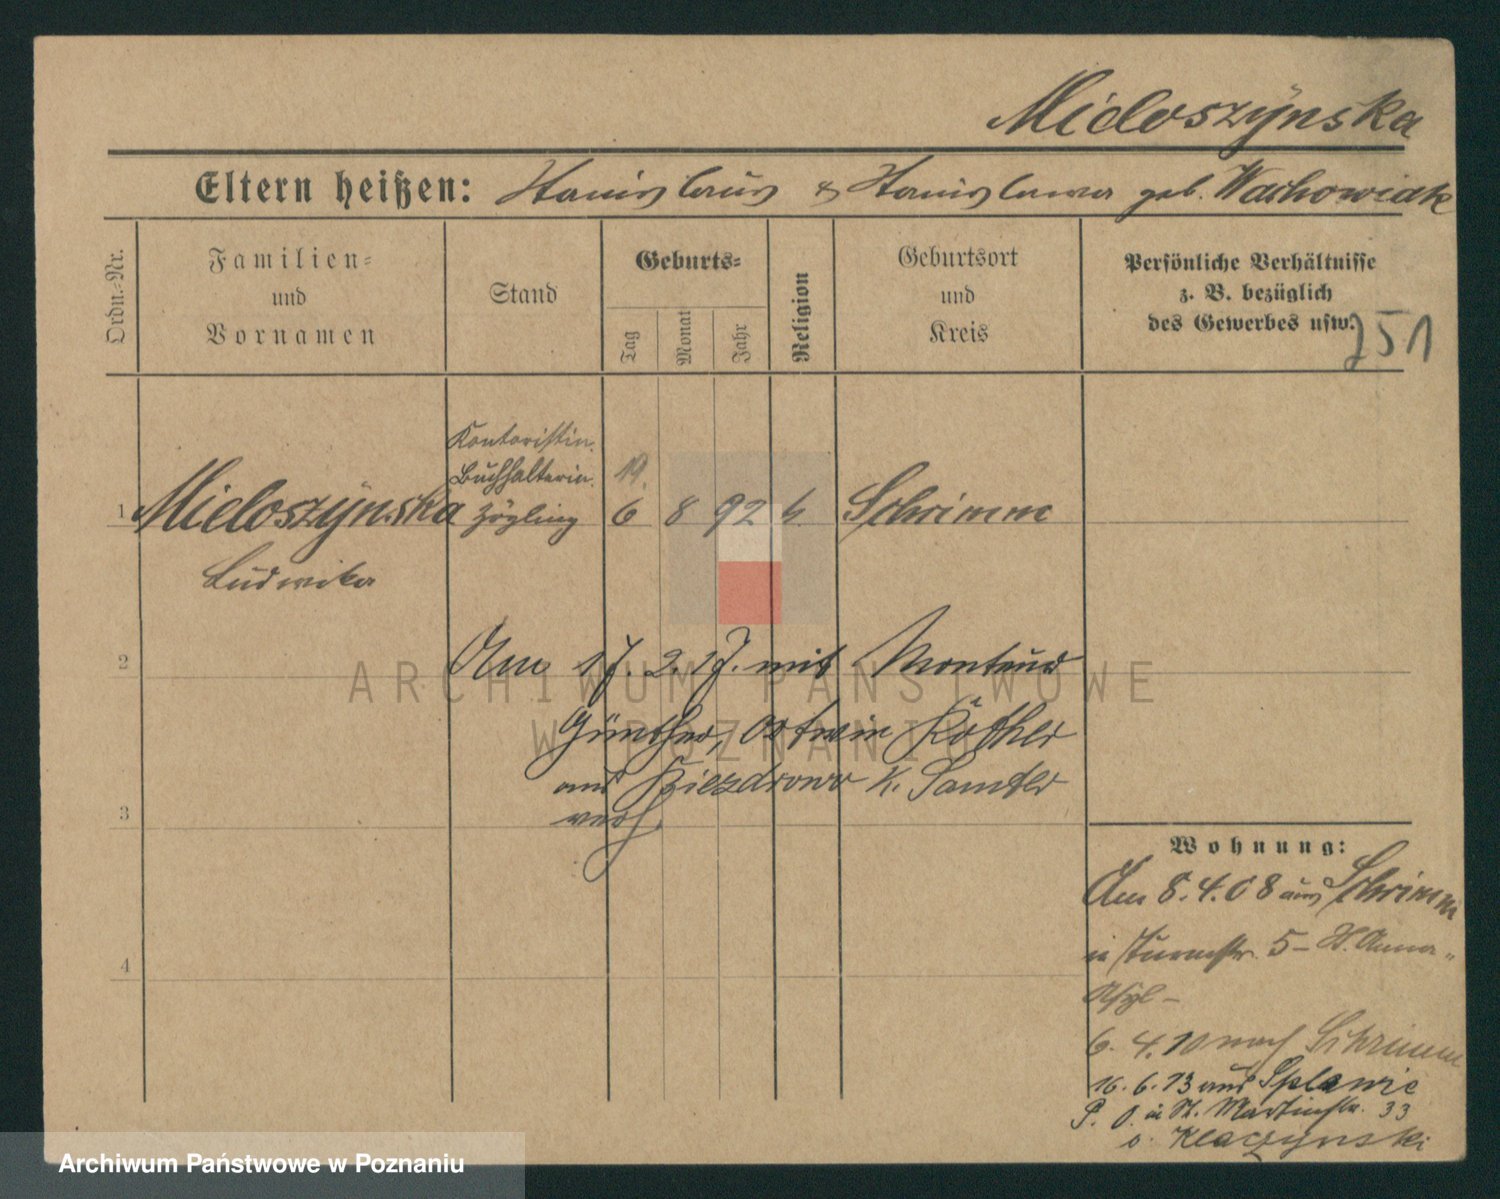 Mieloszyńska
Eltern heißen: Stanislaus & Stanislawa geb. Wachowiak
Ordn.-Nr.
Familien-
und
Vornamen
Stand
Geburts-
Tag
Monat
Jahr
Religion
Geburtsort
und
Kreis
Persönliche Verhältnisse
z. B. bezüglich
des Gewerbes usw.
751
Kontoristin.
Buchhalterin.
19.
1 Mieloszyńska Zögling 6 8 92 k. Schrimm
Ludwika
2
Am 17. 2. 17. mit Monteur
Günther, Ostwin Köther
aus Kiezdrowo K. Samter
verh.
3
4
Wohnung:
Am 8.4.08 aus Schrimm
in Turmstr. 5 – St. Anna-
Asyl –
6. 4. 10 nach Schrimm
16. 6. 13 aus Splawie
P. O. in St. Martinstr. 33
b. Kloczynski
ARCHIWUM PAŃSTWOWE
W POZNANIU
Archiwum Państwowe w Poznaniu